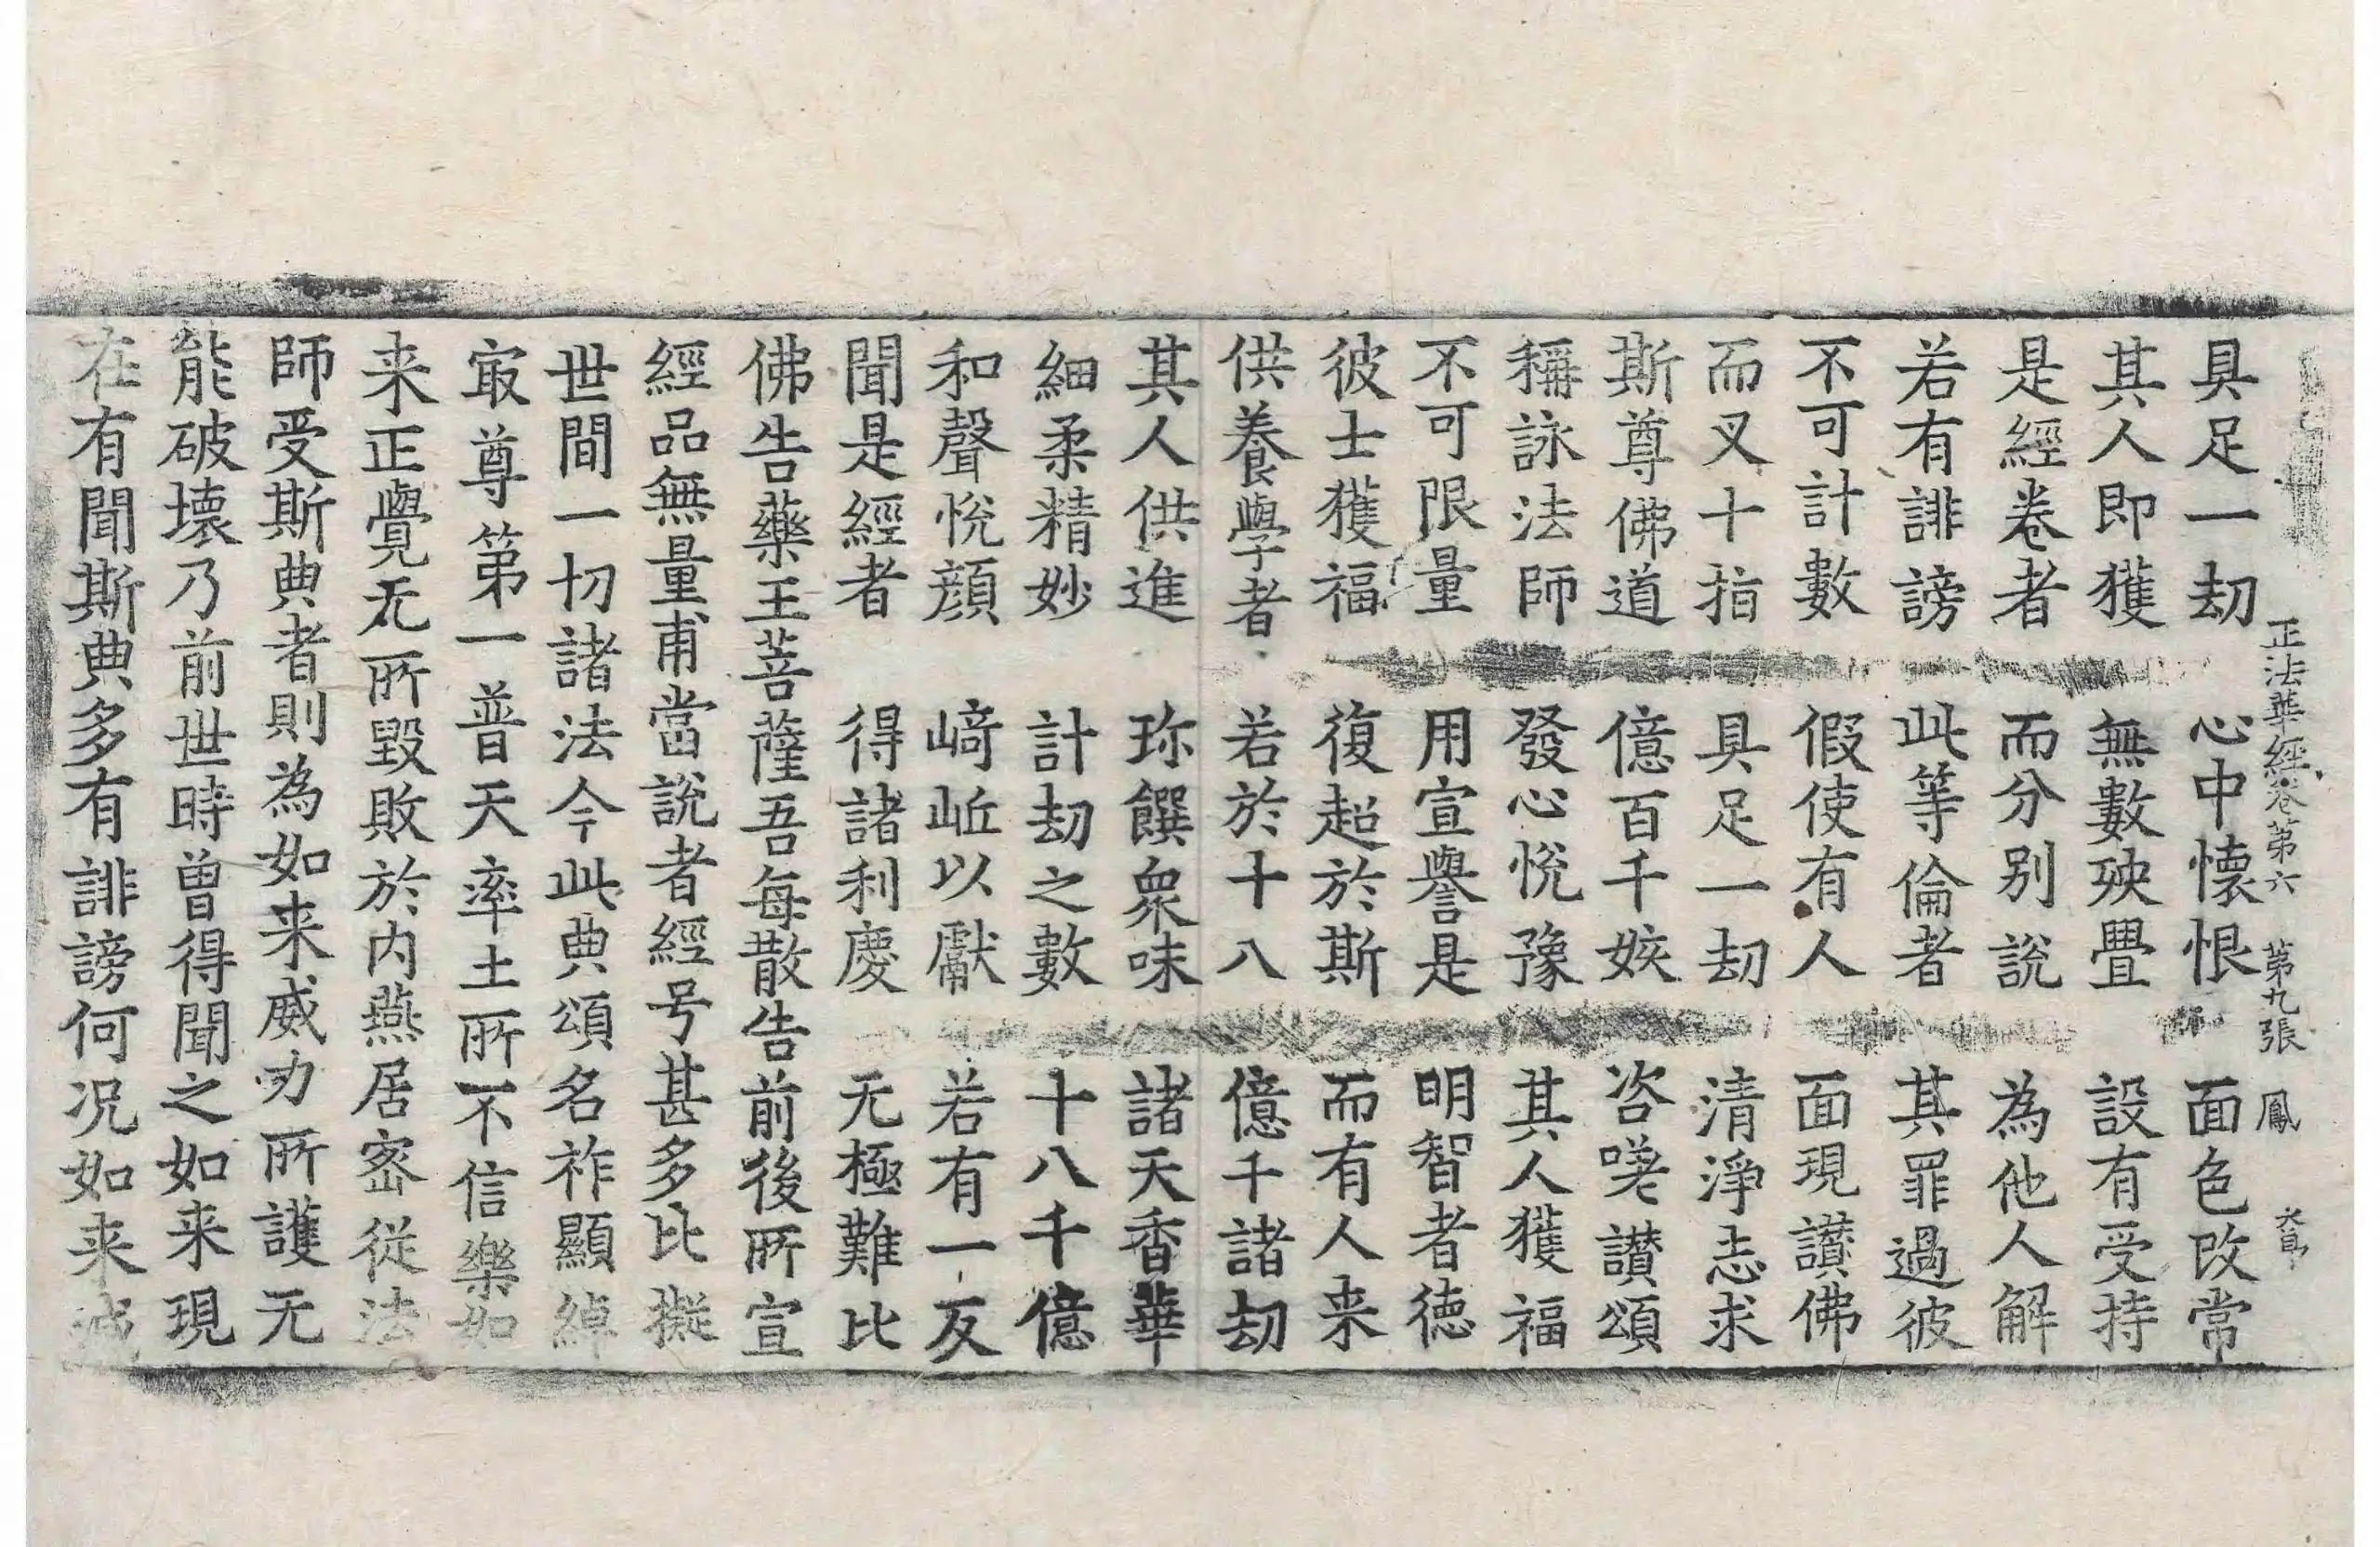 正法華經卷第六　第九張　鳳
具足一刧　心中懐恨　面色改常
其人即獲　無數殃疊　設有受持
是經卷者　而分别說　為他人解
若有誹謗　此等倫者　其罪過彼
不可計數　假使有人　面現讃佛
而叉十指　具足一刧　清淨志求
斯尊佛道　億百千姟　咨嗟讃頌
稱詠法師　發心悅豫　其人獲福
不可限量　用宣譽是　明智者徳
彼士獲福　復超於斯　而有人来
供養學者　若於十八　億千諸刧
其人供進　珎饌衆味　諸天香華
細柔精妙　計刧之數　十八千億
和聲悅顔　﨑嶇以獻　若有一反
聞是經者　得諸利慶　无極難比
佛告藥王菩薩吾每散告前後所宣
經品無量甫當說者經号甚多比擬
世間一切諸法今此典頌名祚顯綽
㝡尊第一普天率土所不信樂如
来正覺无所毀敗於内燕居宻從法
師受斯典者則為如来威力所護无
能破壞乃前世時曽得聞之如来現
在有聞斯典多有誹謗何况如来滅